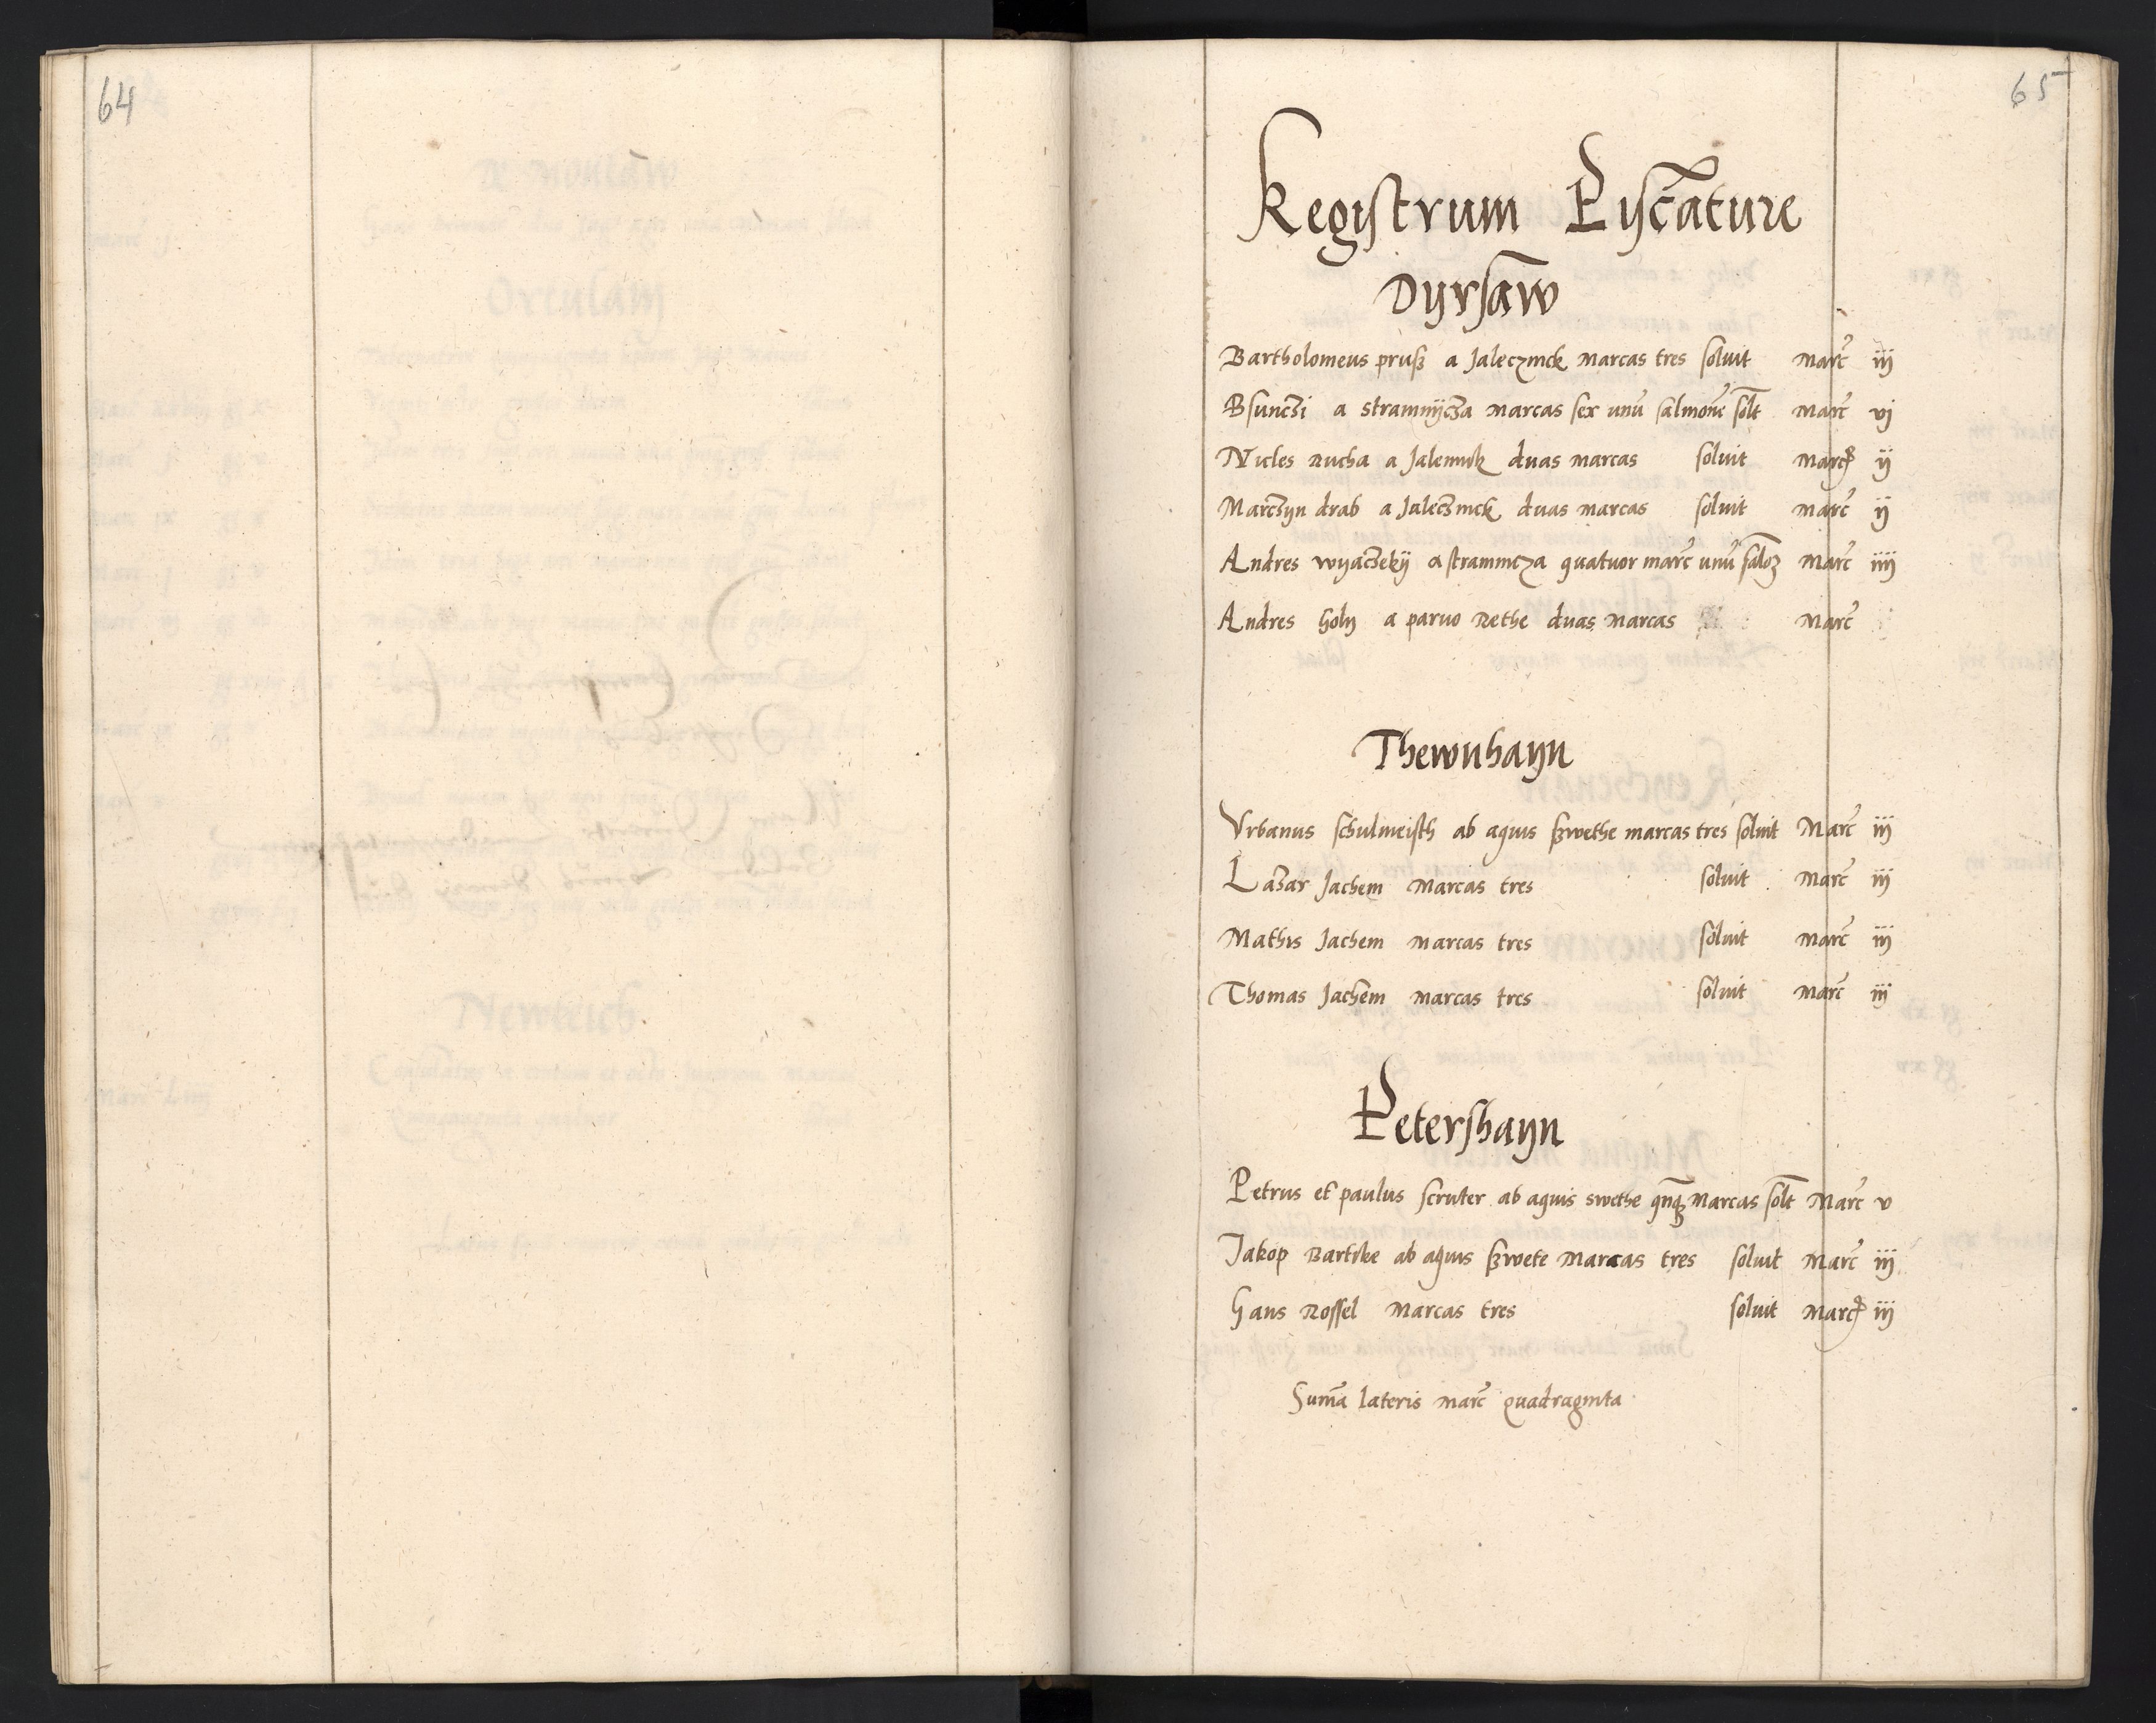 64
65
Registrum Piscature
Dyrsaw
Bartholomeus pruß a Jaleczinck marcas tres soluit Marc̃ iij
Bsunczi a stramnijcza marcas sex unũ salmonẽ sol̃t Marc̃ vj
Nicles Rucha a Jalennik duas marcas soluit Marc̃ ij
Marczyn drab a Jaleczinck duas marcas soluit Marc̃ ij
Andres wyaczekij a stramnicza quatuor marc̃ unũ Marc̃ iiij
Andres holy a paruo Rethe duas marcas Marc̃
Thewnhayn
Vrbanus schulmeisth ab aquis szwethe marcas tres soluit Marc̃ iij
Lazar Jachem marcas tres soluit Marc̃ iij
Mathis Jachem marcas tres soluit Marc̃ iij
Thomas Jachem marcas tres soluit Marc̃ iij
Petershayn
Petrus et paulus scruter ab aquis swethe marcas sol̃t Marc̃ v
Jakop Bartike ab aquis szwete marcas tres soluit Marc̃ iij
Hans Rossel marcas tres soluit Marc̃ iij
Sum̃a lateris marc̃ quadraginta